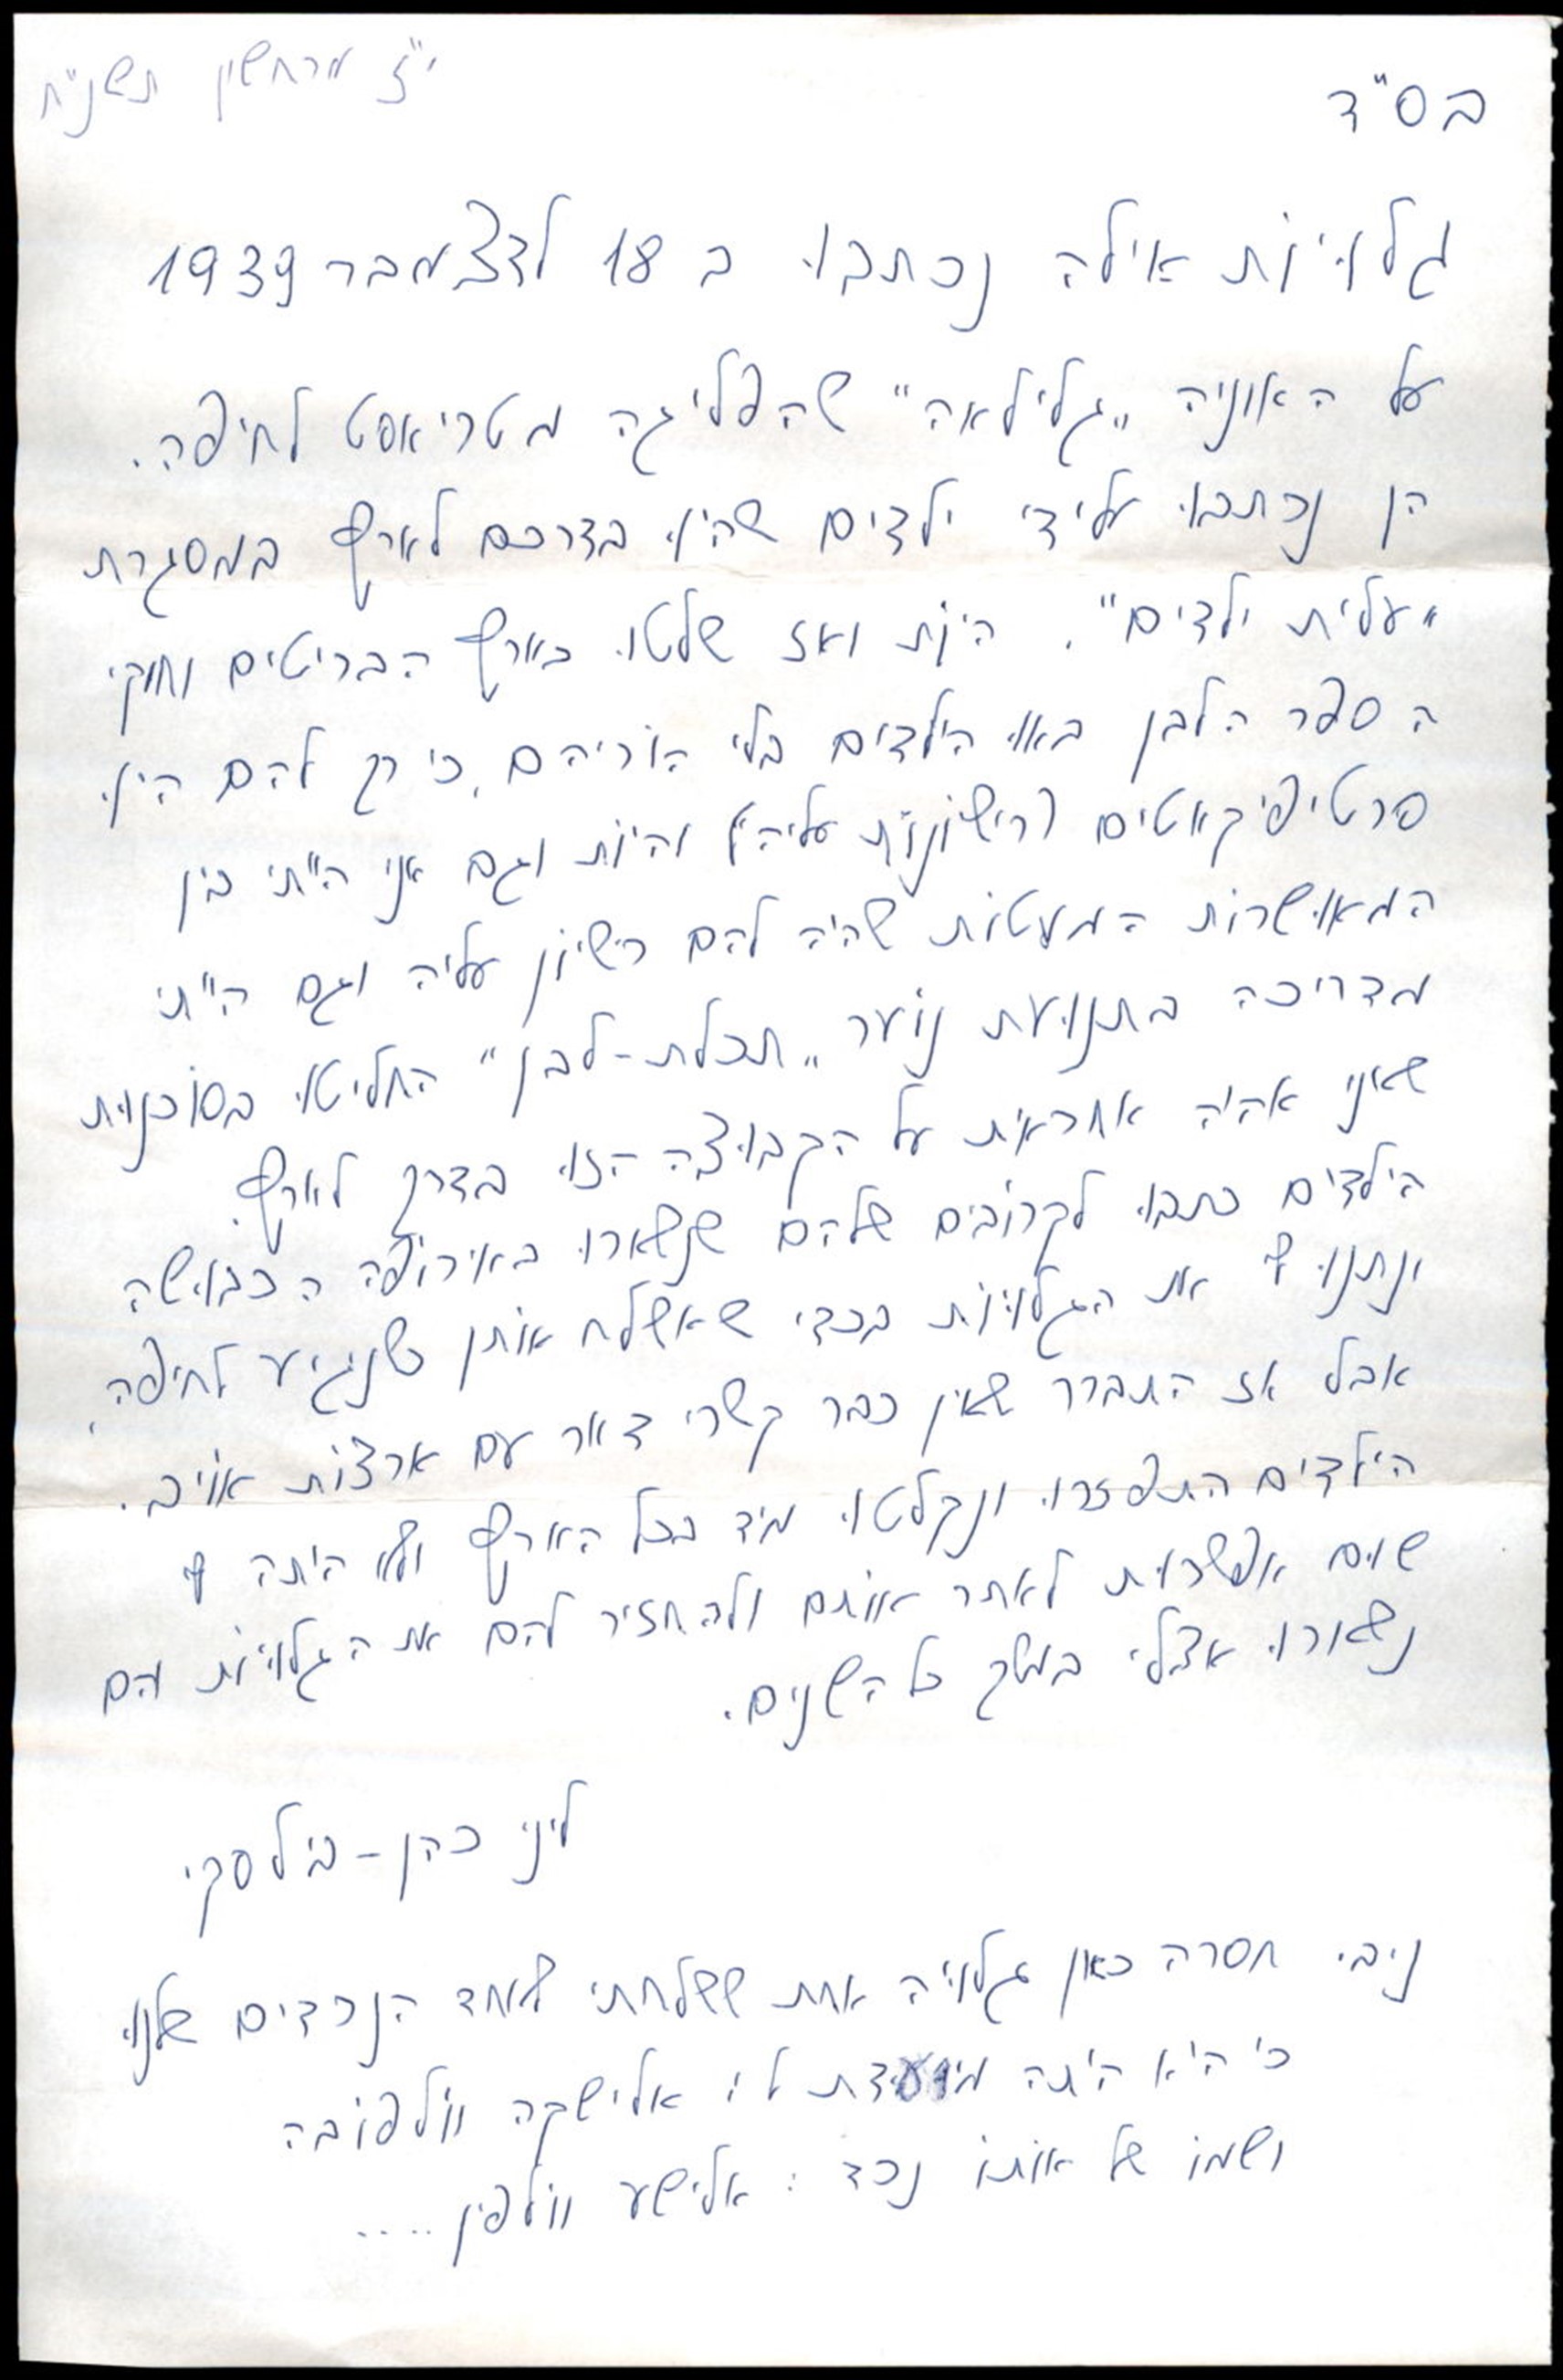 בס"ד
י"ז מרחשון תשנ"ח
גלויות אילה נכתבו ב 18 לדצמבר 1939
על האוניה "גלילאה" שהפליגה מטריאסט לחיפה.
הן נכתבו על ידי ילדים שהיו בדרכם לארץ במסגרת
"עלית ילדים". היות ואז שלטו בארץ הבריטים וחוקי
הספר הלבן באו הילדים בלי הוריהם, כי רק להם היו
סרטיפיקאטים (רישיונות עליה) והיות וגם אני הייתי בין
המאושרות המעטות שהיה להם רישיון עליה וגם הייתי
מדריכה בתנועת נוער "תכלת-לבן" החליטו בסוכנות
שאני אהיה אחראית על הקבוצה הזו בדרך לארץ.
הילדים כתבו לקרובים שלהם שנשארו באירופה הכבושה
ונתנו לי את הגלויות בכדי שאשלח אותן כשנגיע לחיפה,
אבל אז התברר שאין כבר קשרי דואר עם ארצות אויב.
הילדים התפזרו ונקלטו מיד בכל הארץ ולא היתה לי
שום אפשרות לאתר אותם ולהחזיר להם את הגלויות והם
נשארו אצלי במשך כל השנים.
ליני כהן-בילסקי
ניבי חסרה כאן גלויה אחת ששלחתי לאחד הנכדים שלנו
כי היא היתה מיועדת לי אלישקה וולפובה
ושמו של אותו נכד : אלישע וולפין .....